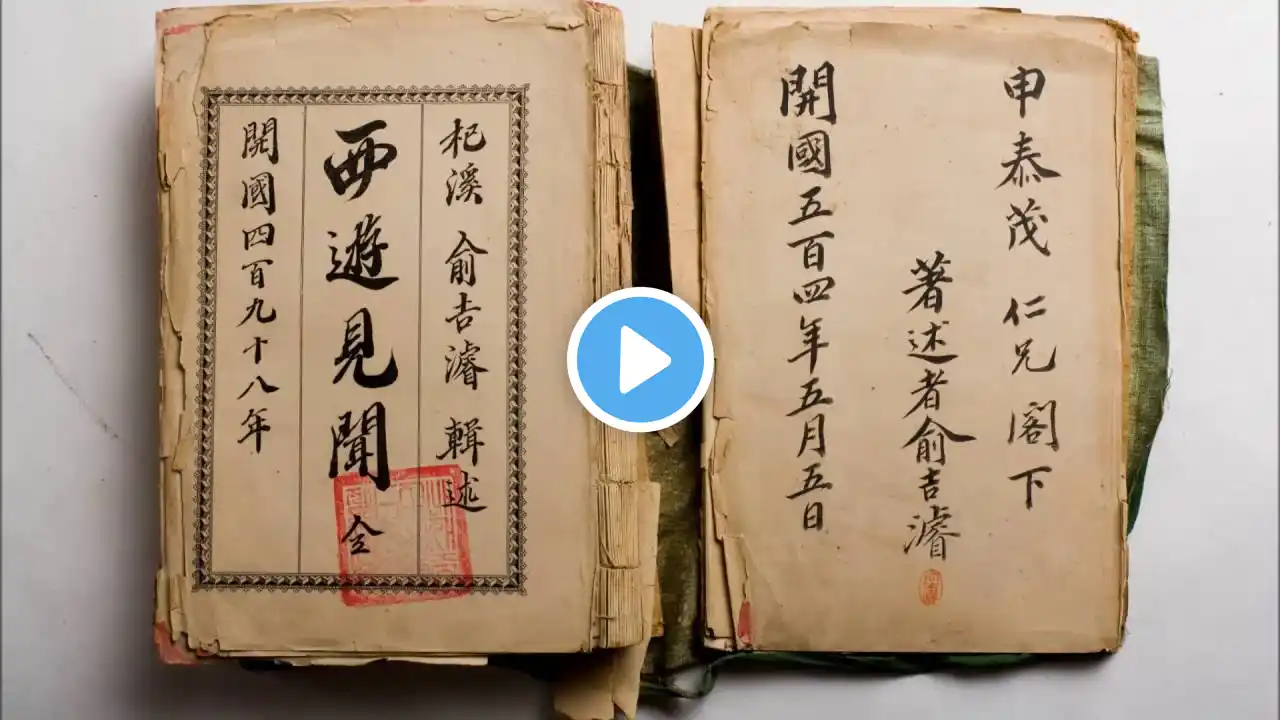 杞溪 俞吉濬 輯述
西遊見聞 全
開國四百九十八年
申泰茂 仁兄 閣下
著述者俞吉濬
開國五百四年五月五日